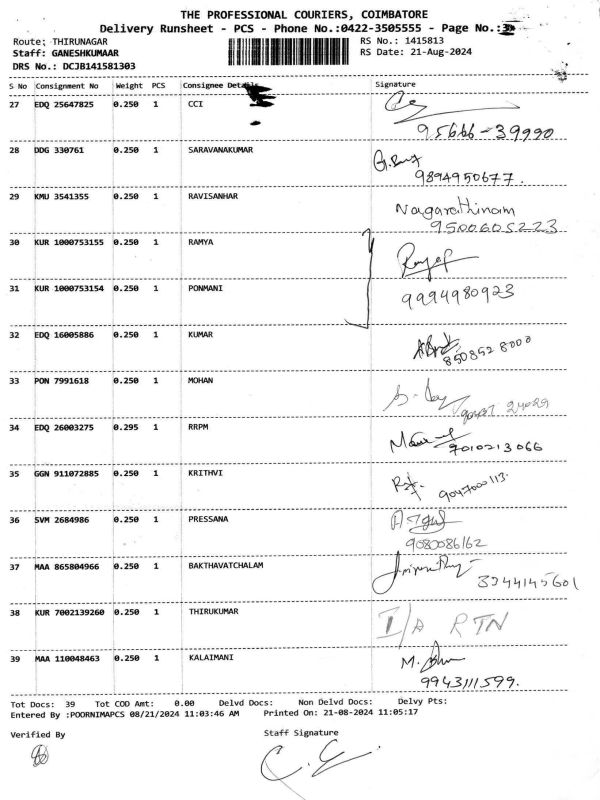 THE PROFESSIONAL COURIERS, COIMBATORE
Delivery Runsheet - PCS - Phone No.:0422-3505555 - Page No.:3
Route: THIRUNAGAR RS No.: 1415813
Staff: GANESHKUMAAR RS Date: 21-Aug-2024
DRS No.: DCJB141581303
S No Consignment No Weight PCS Consignee Details Signature
27 EDQ 25647825 0.250 1 CCI
95666-39990
28 DDG 330761 0.250 1 SARAVANAKUMAR
9894950677.
29 KMU 3541355 0.250 1 RAVISANHAR Nagarathinam
9500605223
30 KUR 1000753155 0.250 1 RAMYA
31 KUR 1000753154 0.250 1 PONMANI 9994980923
32 EDQ 16005886 0.250 1 KUMAR
850852 8000
33 PON 7991618 0.250 1 MOHAN
34 EDQ 26003275 0.295 1 RRPM
7010213066
35 GGN 911072885 0.250 1 KRITHVI
9047000113.
36 SVM 2684986 0.250 1 PRESSANA
9080086162
37 MAA 865804966 0.250 1 BAKTHAVATCHALAM
38 KUR 7002139260 0.250 1 THIRUKUMAR I/A RTN
39 MAA 110048463 0.250 1 KALAIMANI
9943111599.
Tot Docs: 39 Tot COD Amt: 0.00 Delvd Docs: Non Delvd Docs: Delvy Pts:
Entered By :POORNIMAPCS 08/21/2024 11:03:46 AM Printed On: 21-08-2024 11:05:17
Verified By Staff Signature